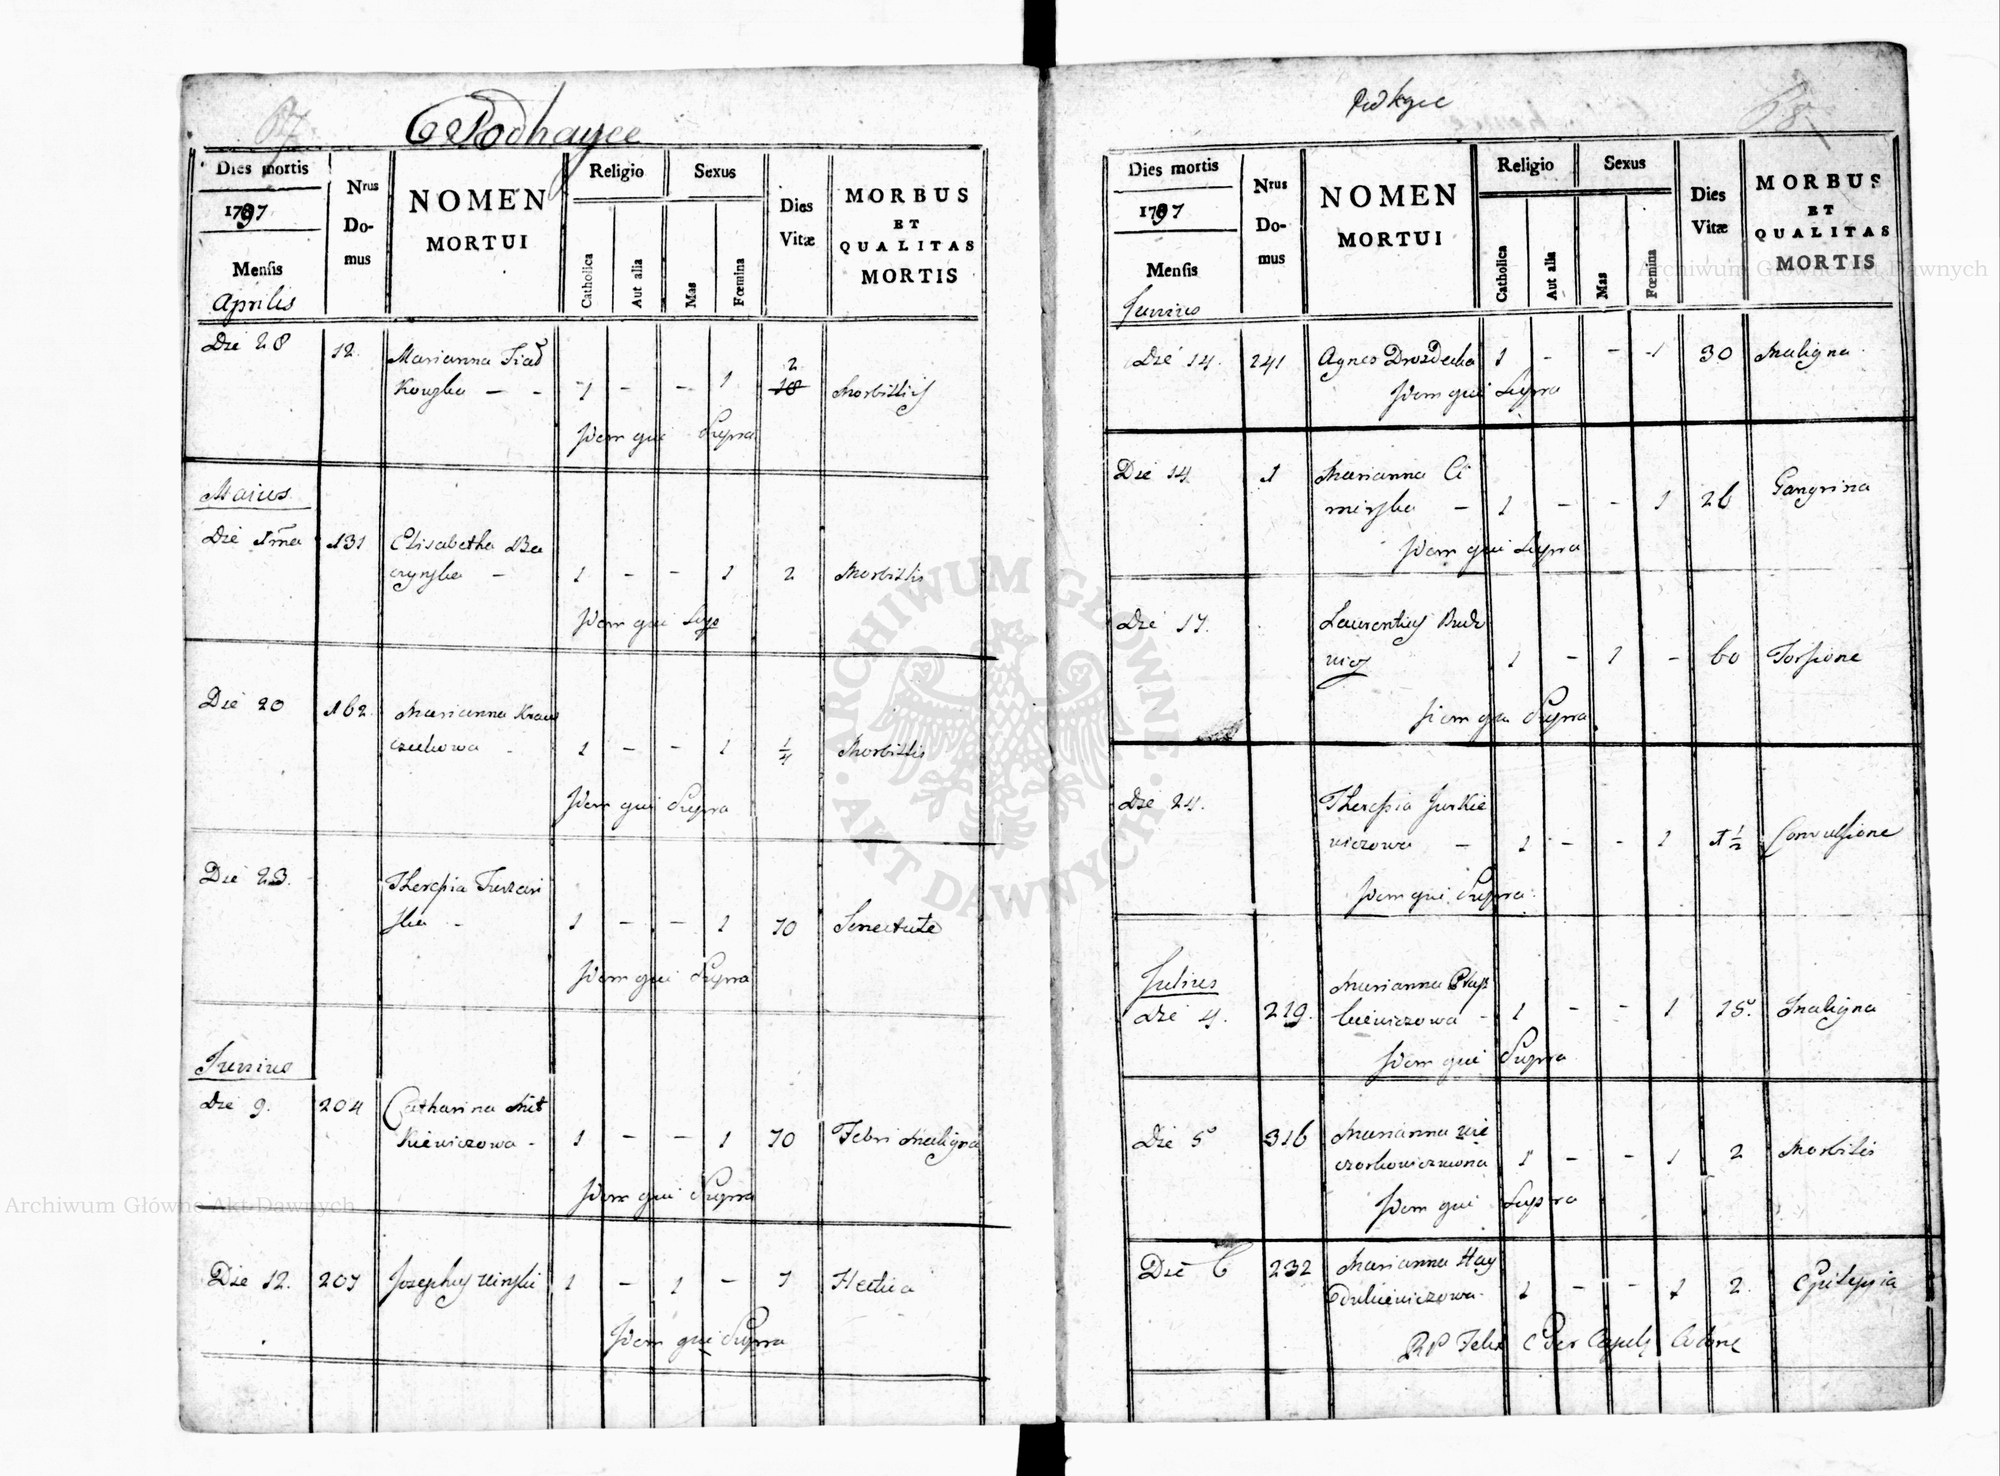 67
Podhayce
Dies mortis
1797
Mensis
Aprilis
Nrus
Do-
mus
NOMEN
MORTUI
Religio
Catholica
Aut alia
Sexus
Mas
Fœmina
Dies
Vitæ
MORBUS
ET
QUALITAS
MORTIS
Die 28 12. Marianna
2
1 - - 1 18 Morbillis
Idem qui Supra
Maius
Die 1ma 131 Elisabetha
1 - - 1 2 Morbillis
Idem qui Sup
Die 20 162. Marianna
czukowa - 1 - - 1 1/4 Morbillis
Idem qui Supra
Die 23. Theresia
1 - - 1 70 Senectute
Idem qui Supra
Junius
Die 9. 204 Catharina Mit
kiewiczowa - 1 - - 1 70 Febri Maligna
Idem qui Supra
Die 12. 207 Josephus 1 - 1 - 1 Hectica
Idem qui Supra
68
Dies mortis
1797
Mensis
Junius
Nrus
Do-
mus
NOMEN
MORTUI
Religio
Catholica
Aut alia
Sexus
Mas
Fœmina
Dies
Vitæ
MORBUS
ET
QUALITAS
MORTIS
Die 14. 241 Agnes 1 - - 1 30 Maligna
Idem qui Supra
Die 14 1 Marianna Ci
- 1 - - 1 26 Gangrina
Idem qui Supra
Die 17. Laurentius
1 - 1 - 60 Torsione
Idem qui Supra
Die 24. Theresia Jurkie
wiczowa - 1 - - 1 1 1/2 Convulsione
Idem qui Supra
Julius
Marianna
Die 4. 219. 1 - - 1 15. Maligna
Idem qui Supra
Die 5 316 Marianna Wie
1 - - 1 2 Morbilis
Idem qui Supra
Die 6 232 Marianna Hay
dukiewiczowa - 1 - - 1 2. Epilepsia
RP Felix
ARCHIWUM GŁÓWNE AKT DAWNYCH
Archiwum Główne Akt Dawnych
Archiwum Główne Akt Dawnych